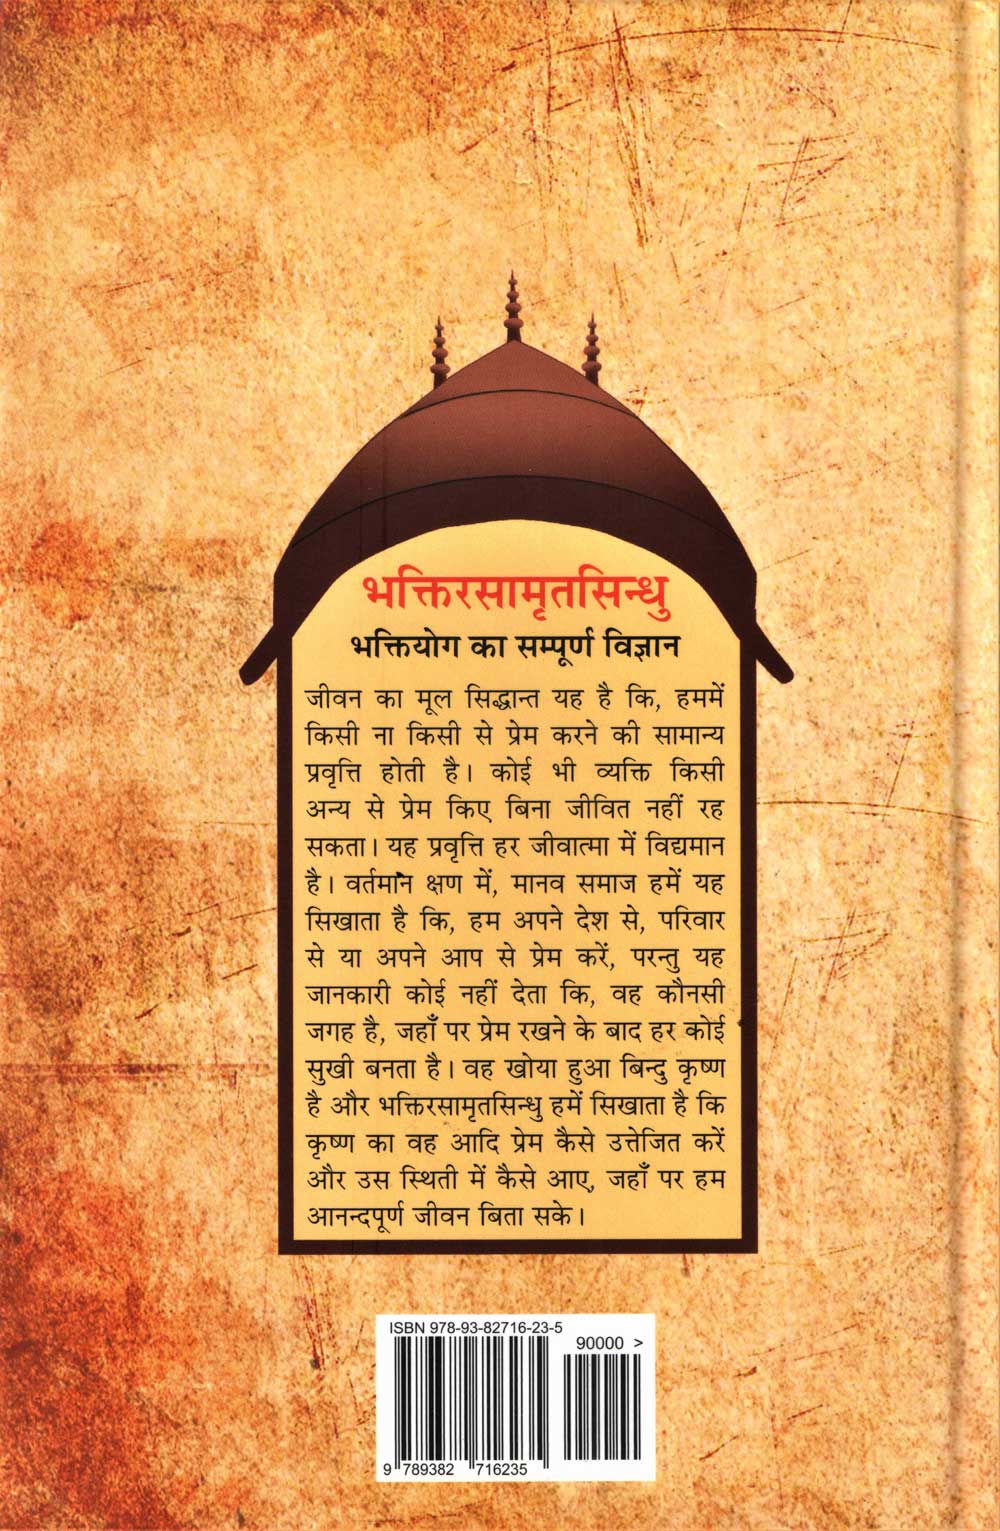 भक्तिरसामृतसिन्धु
भक्तियोग का सम्पूर्ण विज्ञान
जीवन का मूल सिद्धान्त यह है कि, हममें
किसी ना किसी से प्रेम करने की सामान्य
प्रवृत्ति होती है। कोई भी व्यक्ति किसी
अन्य से प्रेम किए बिना जीवित नहीं रह
सकता। यह प्रवृत्ति हर जीवात्मा में विद्यमान
है। वर्तमान क्षण में, मानव समाज हमें यह
सिखाता है कि, हम अपने देश से, परिवार
से या अपने आप से प्रेम करें, परन्तु यह
जानकारी कोई नहीं देता कि, वह कौनसी
जगह है, जहाँ पर प्रेम रखने के बाद हर कोई
सुखी बनता है। वह खोया हुआ बिन्दु कृष्ण
है और भक्तिरसामृतसिन्धु हमें सिखाता है कि
कृष्ण का वह आदि प्रेम कैसे उत्तेजित करें
और उस स्थिती में कैसे आए, जहाँ पर हम
आनन्दपूर्ण जीवन बिता सके।
ISBN 978-93-82716-23-5
90000 >
9 789382 716235